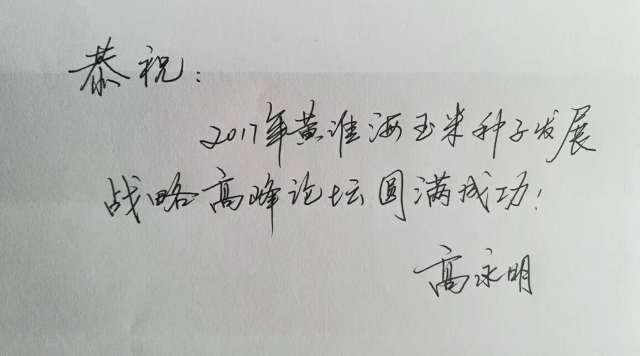 恭祝：
2017年黄淮海玉米种子发展
战略高峰论坛圆满成功！
高永明